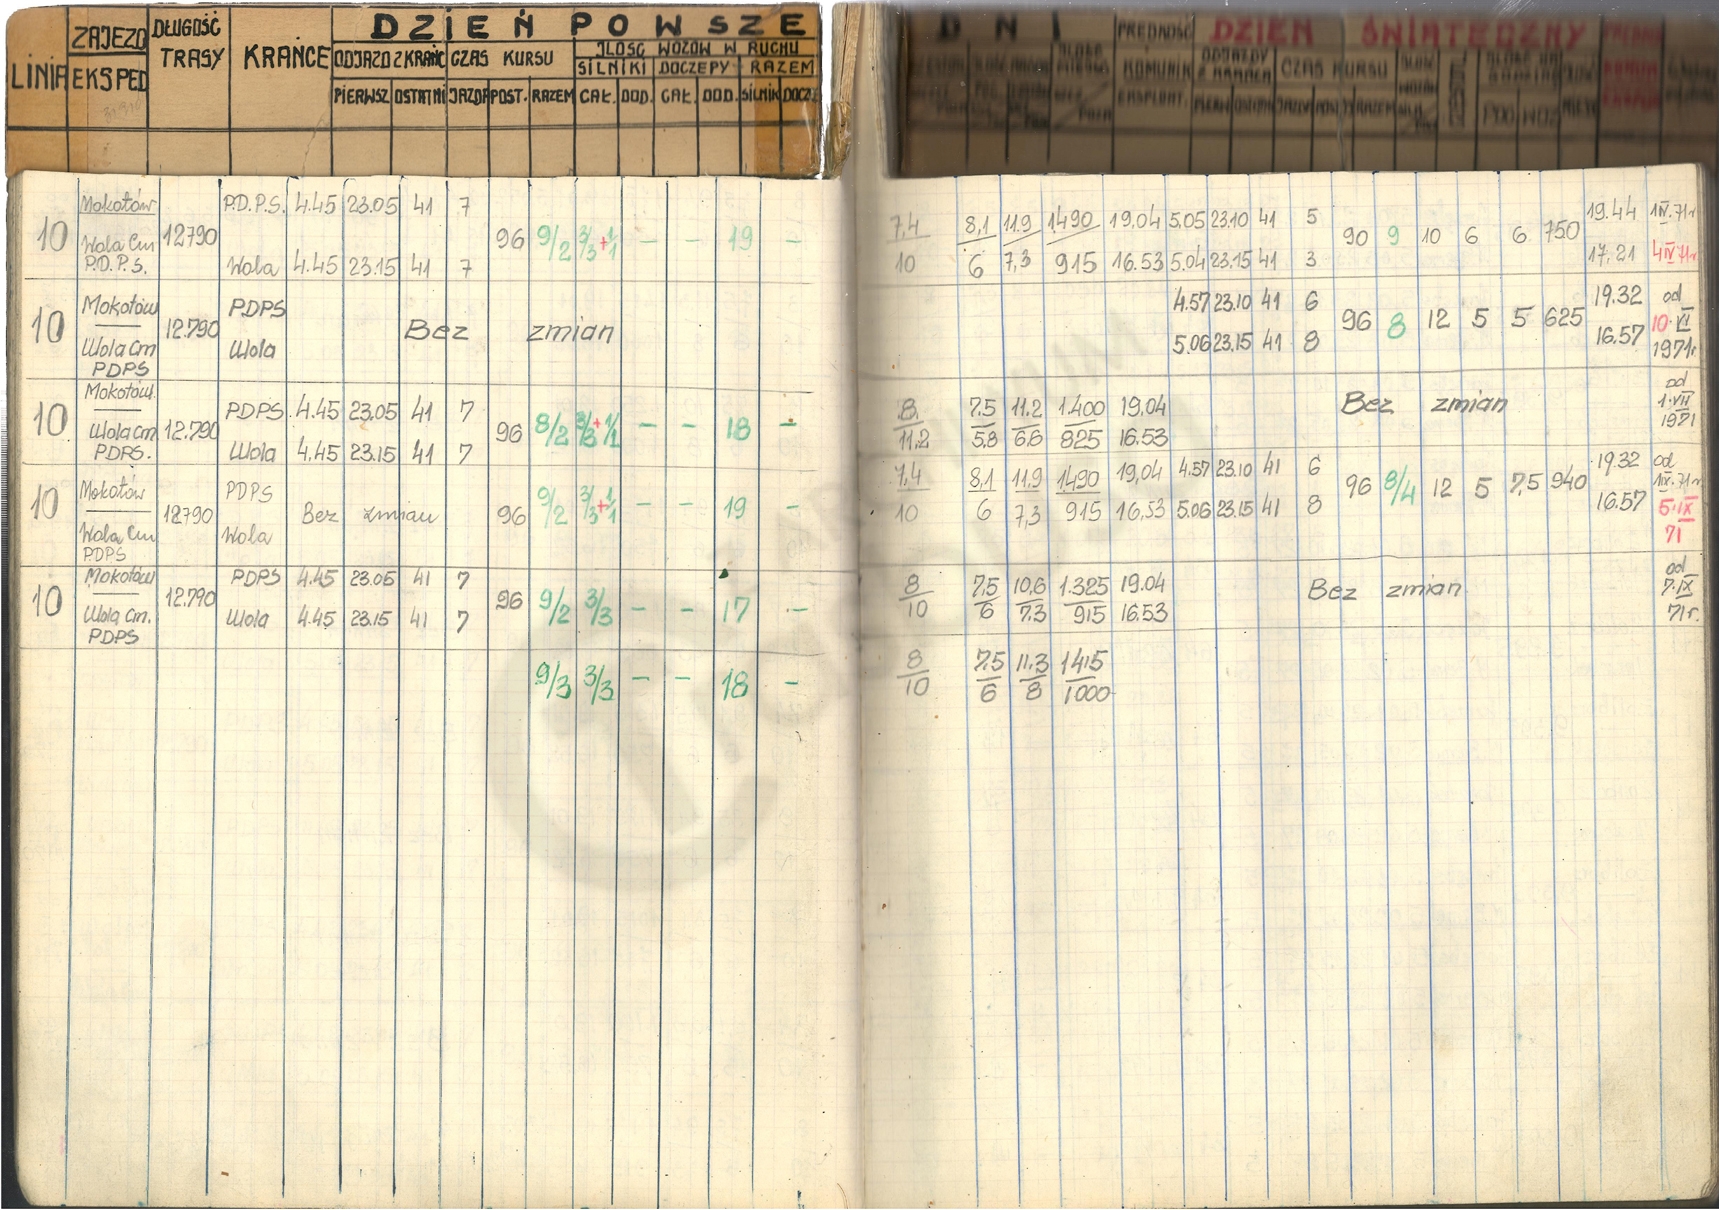 DZIEŃ POWSZE
DNI
DZIEŃ ŚWIĄTECZNY
LINIA
ZAJEZD
EKSPED
DŁUGOŚĆ
TRASY
KRAŃCE
ODJAZD Z KRAŃC
CZAS KURSU
ILOŚĆ WOZÓW W RUCHU
SILNIKI DOCZEPY RAZEM
PIERWSZ OSTATNI JAZDA POST. RAZEM CAŁ. DOD. CAŁ. DOD. SILNIK DOCZ.
PRĘDKOŚĆ
KOMUNIK
EKSPLOAT.
ODJAZDY
Z KRAŃCA
CZAS KURSU
Mokotów P.D.P.S. 4.45 23.05 41 7
10 12790 96 9/2 3/3+1/1 - - 19 -
Wola Cm Wola 4.45 23.15 41 7
P.D.P.S.
7,4 8,1 11.9 1490 19,04 5.05 23.10 41 5 19.44 1IV.71r
90 9 10 6 6 750
10 6 7,3 915 16.53 5.04 23.15 41 3 17.21 4IV71r
Mokotów PDPS
10 12.790 Bez zmian
Wola Cm Wola
PDPS
4.57 23.10 41 6 19.32 od
96 8 12 5 5 625 10.VI
5.06 23.15 41 8 16.57 1971r.
Mokotów PDPS 4.45 23.05 41 7
10 12.790 96 8/2 3/3+1/1 - - 18 -
Wola Cm Wola 4.45 23.15 41 7
PDPS.
8 7.5 11.2 1.400 19.04 Bez zmian od
11,2 5,8 6,6 825 16.53 1.VII
1971
Mokotów PDPS
10 12790 Bez zmian 96 9/2 3/3+1/1 - - 19 -
Wola Cm Wola
PDPS
7,4 8,1 11,9 1490 19,04 4.57 23.10 41 6 19.32 od
96 8/4 12 5 7,5 940 1IX.71r
10 6 7,3 915 16,53 5.06 23.15 41 8 16.57 5.IX
71
Mokotów PDPS 4.45 23.05 41 7
10 12.790 96 9/2 3/3 - - 17 -
Wola Cm. Wola 4.45 23.15 41 7
PDPS
8 7,5 10,6 1.325 19.04 Bez zmian od
10 6 7.3 915 16.53 7.IX
71r.
9/3 3/3 - - 18 -
8 7,5 11,3 1415
10 6 8 1000